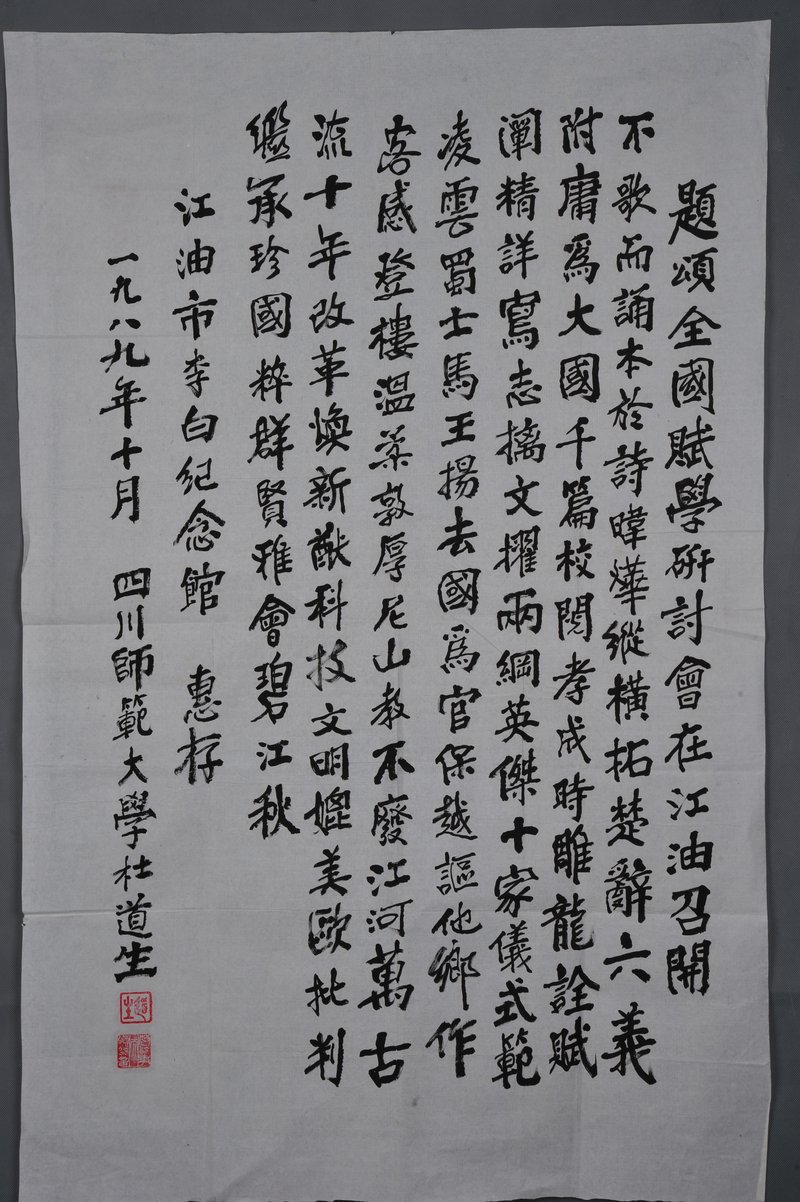 題頌全國賦學研討會在江油召開
不歌而誦本於詩暐燁縱橫拓楚辭六義
附庸爲大國千篇校閱孝成時雕龍詮賦
闡精詳寫志摛文擢兩綱英傑十家儀式範
凌雲蜀士馬王揚去國爲官保越謳他鄉作
客感登樓溫柔敦厚尼山教不廢江河萬古
流十年改革煥新猷科技文明媲美歐批判
繼承珍國粹群賢雅會碧江秋
江油市李白紀念館 惠存
一九八九年十月 四川師範大學杜道生